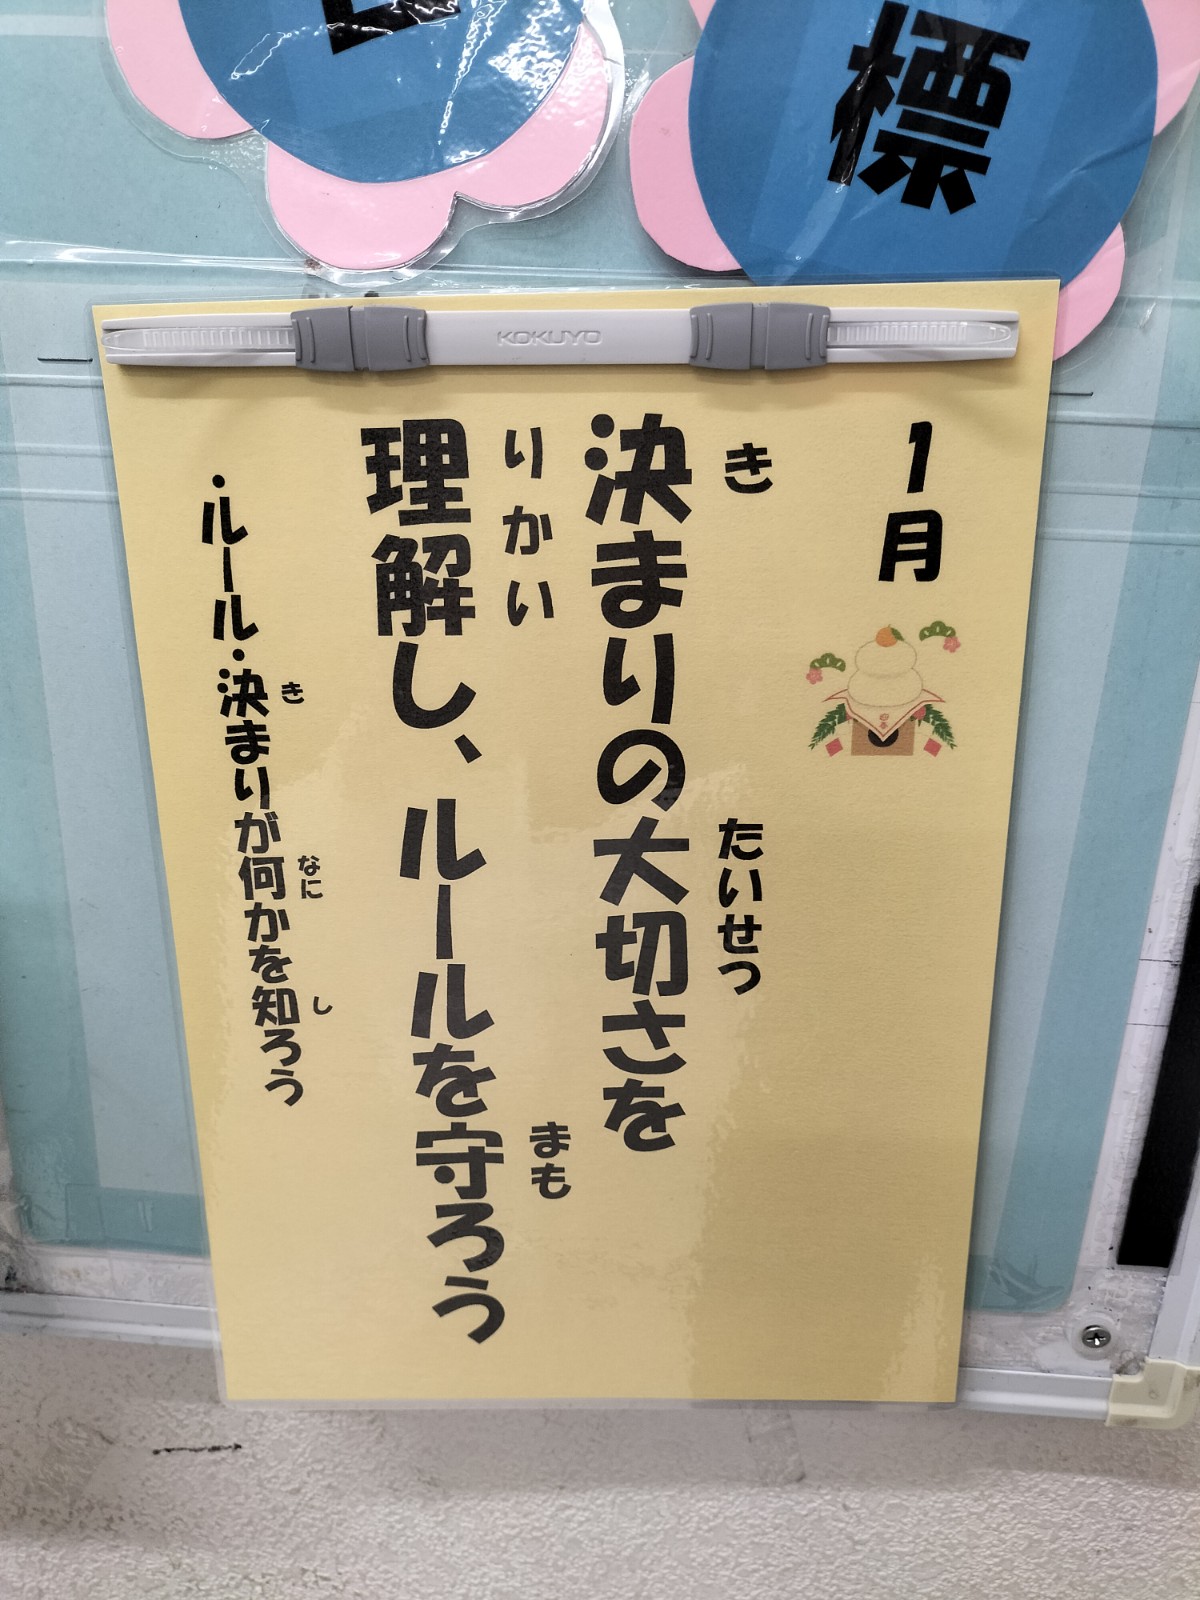 標
KOKUYO
1月
き たいせつ
決まりの大切さを
りかい まも
理解し、ルールを守ろう
き なに し
・ルール・決まりが何かを知ろう